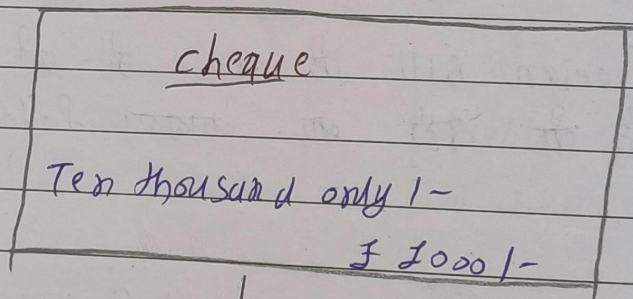 cheque
Ten thousand only /-
₹ 1000/-